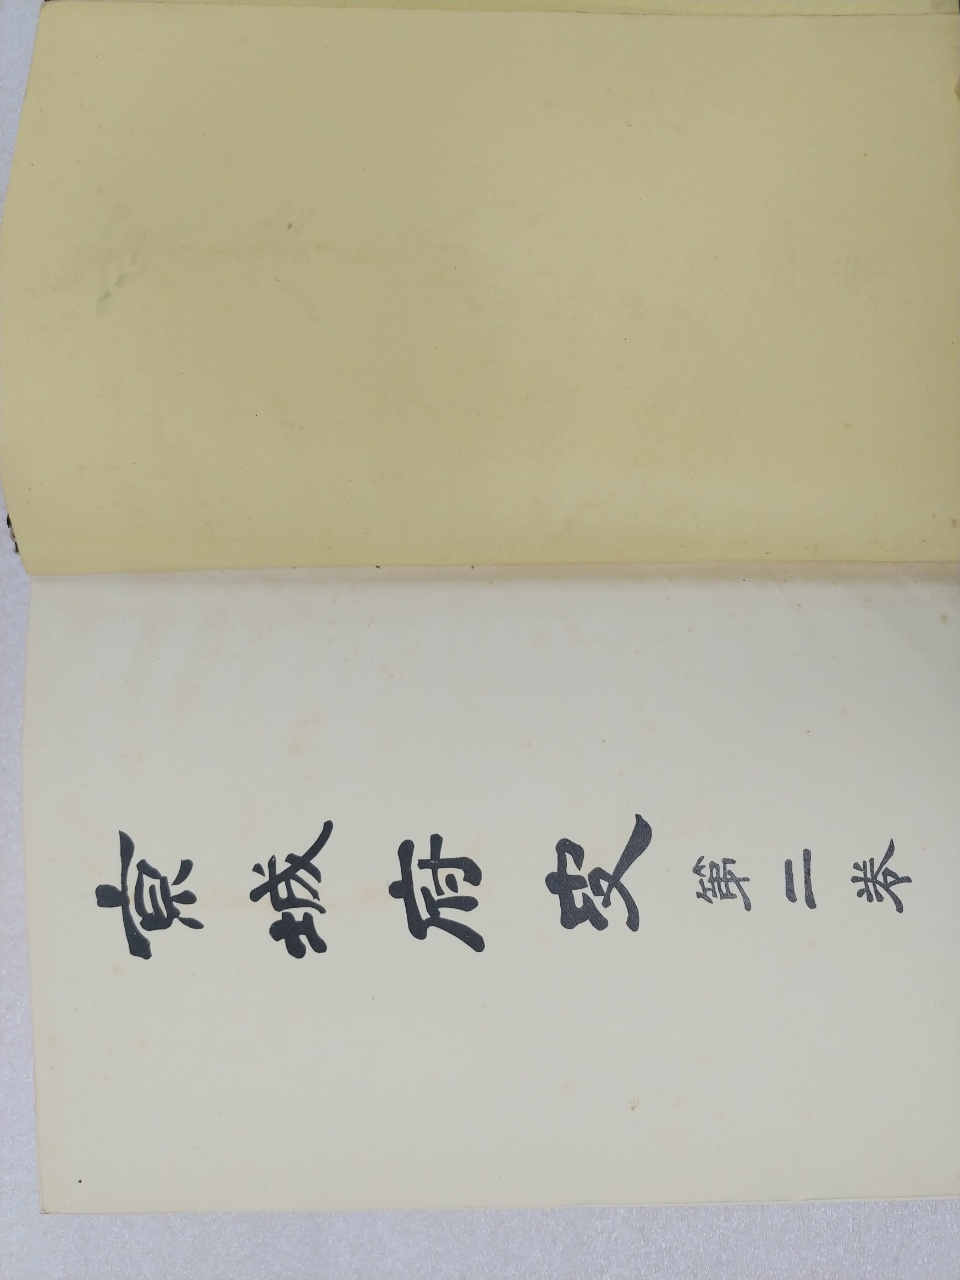 京城府史 第二卷